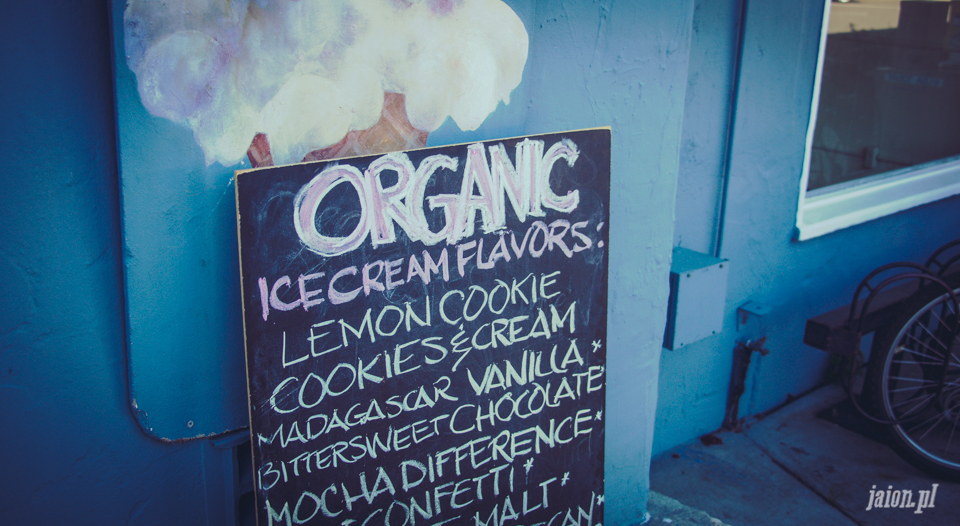 ORGANIC
ICE CREAM FLAVORS:
LEMON COOKIE
COOKIES & CREAM
MADAGASCAR VANILLA *
BITTERSWEET CHOCOLATE *
MOCHA DIFFERENCE *
CONFETTI *
MALT *
jaion.pl